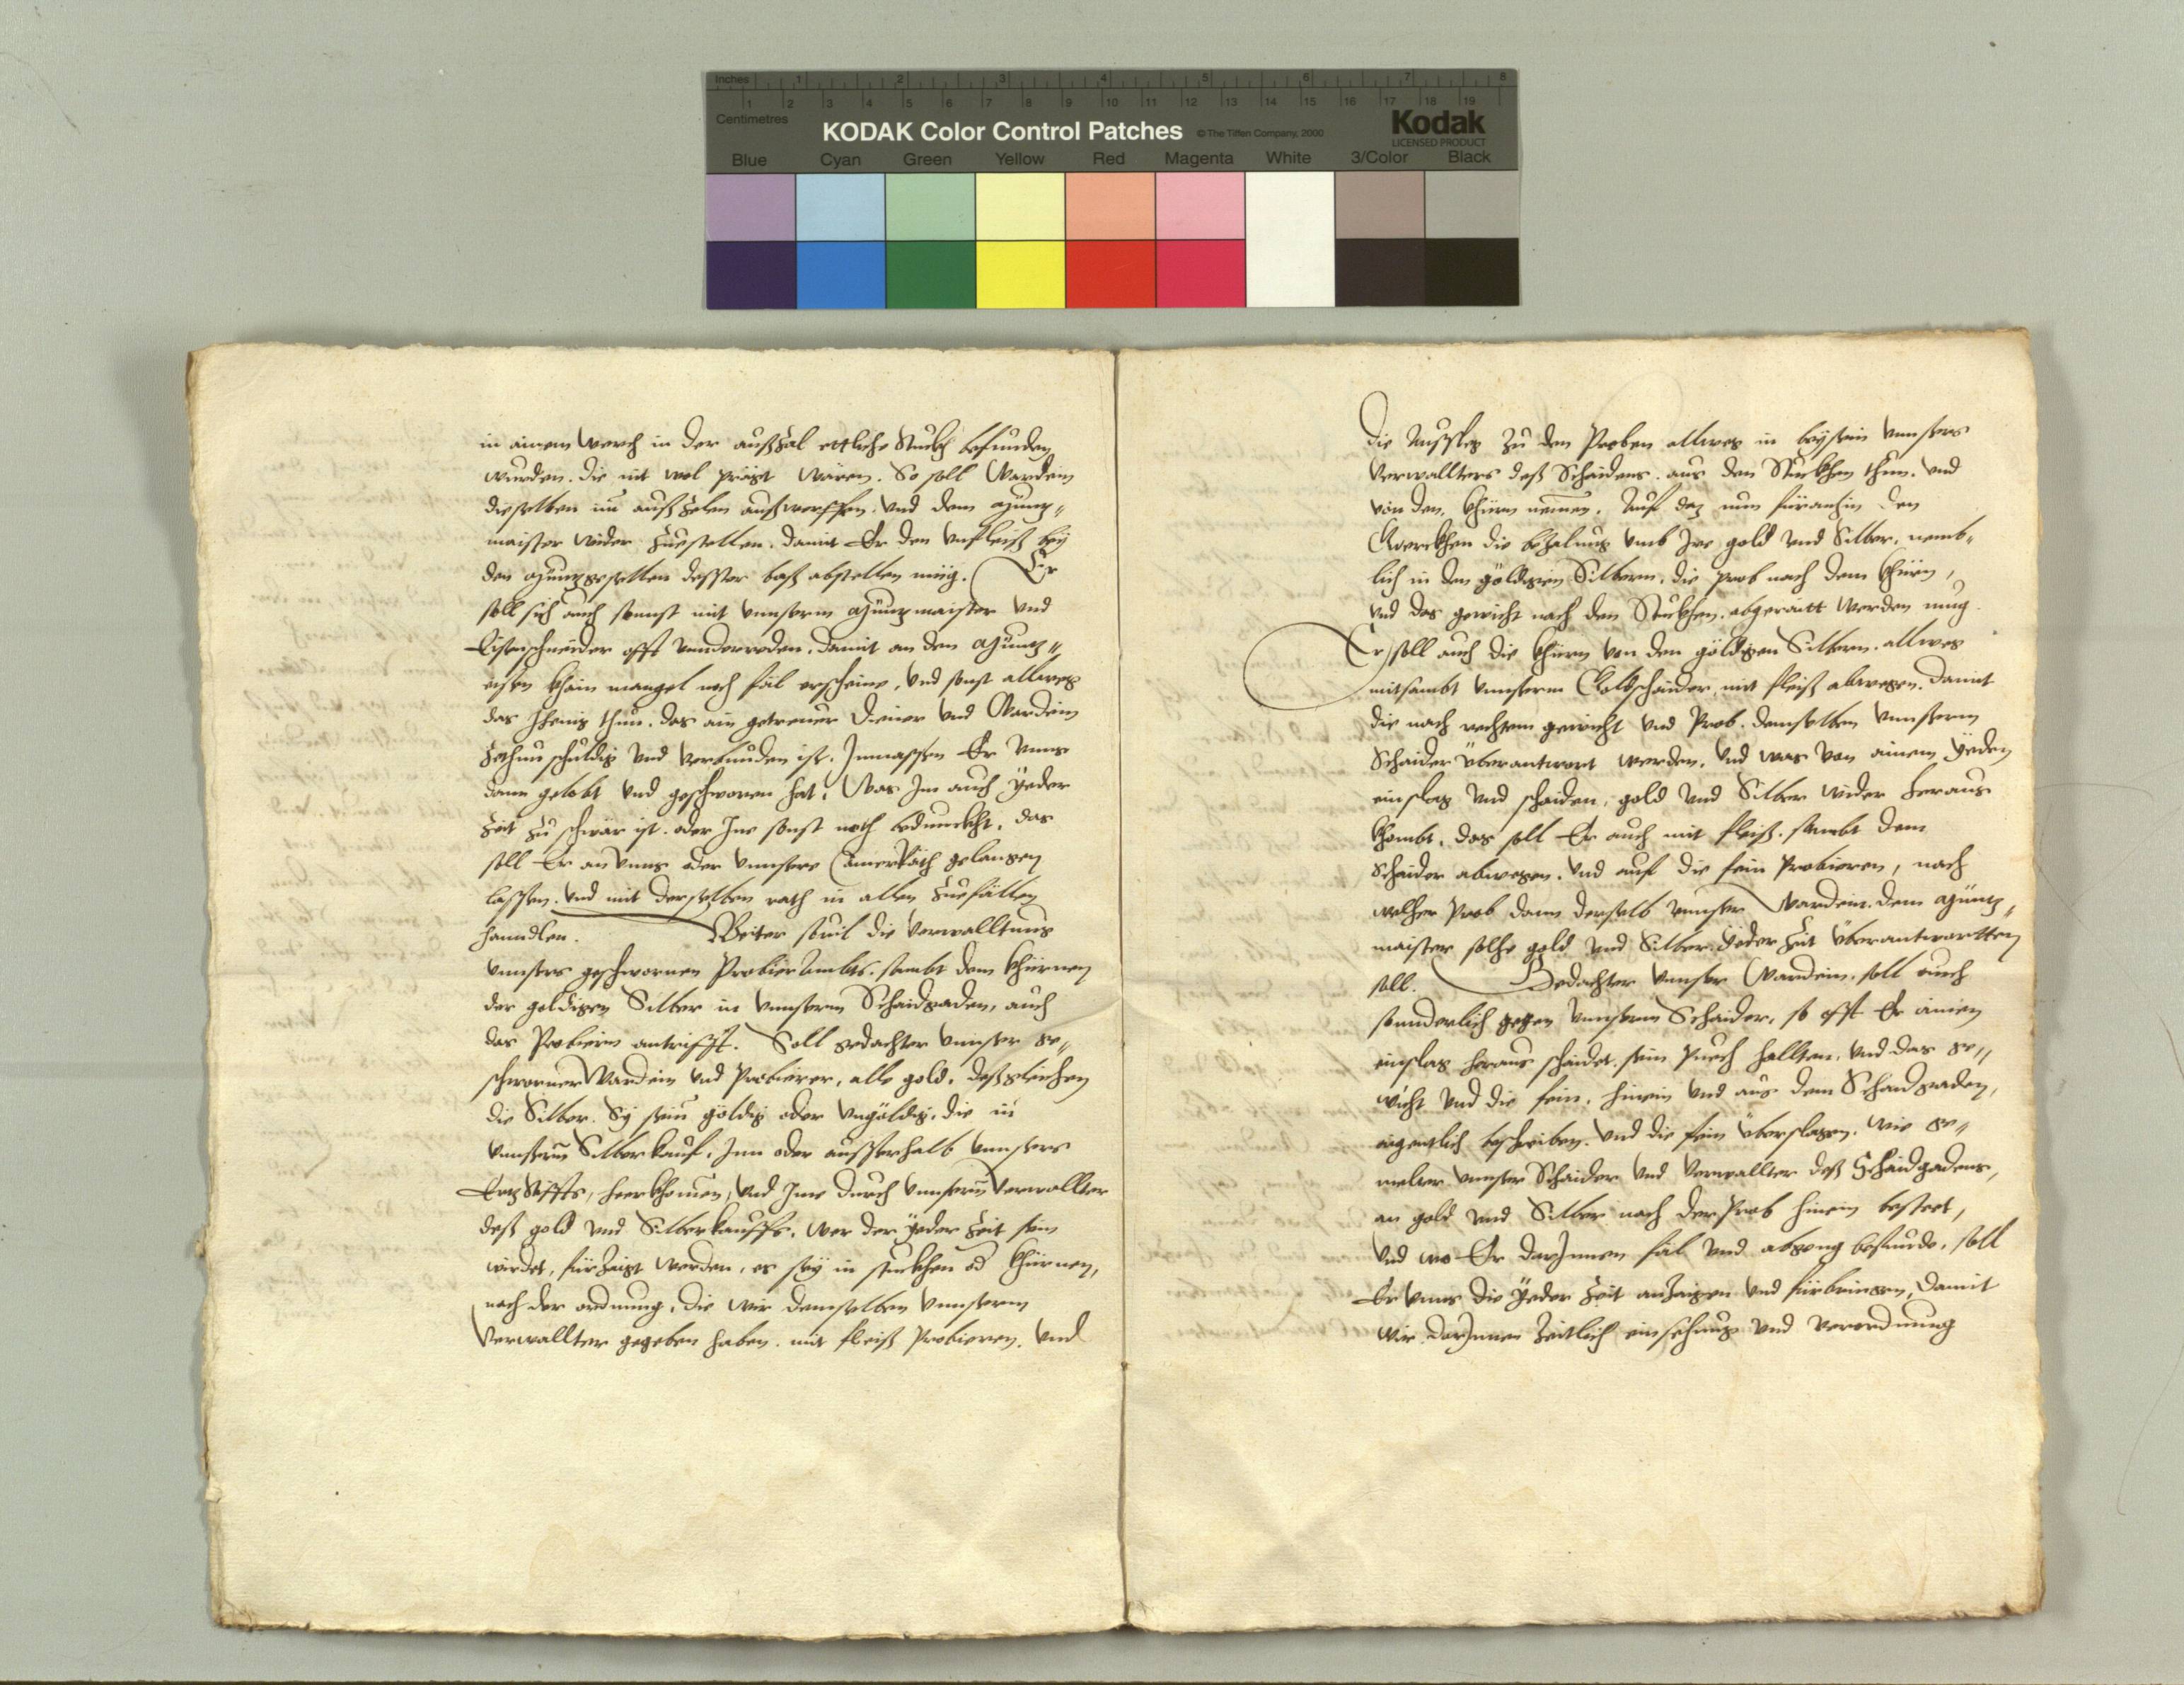 Inches 1 2 3 4 5 6 7 8
1 2 3 4 5 6 7 8 9 10 11 12 13 14 15 16 17 18 19
Centimetres
KODAK Color Control Patches © The Tiffen Company, 2000 Kodak
LICENSED PRODUCT
Blue Cyan Green Yellow Red Magenta White 3/Color Black
in ainem Werch in der außzal ettliche Stuckh befunden
wurden. die nit wol prägt wären. So soll Wardein
dieselben im aufzelen außwerffen. vnd dem Müntz„
maister wider zuestellen. damit Er den vnfleiß bey
den Müntzgesellen dessster baß abstellen müg. Er
soll sich auch sonnst mit vnnserm Müntzmaister vnd
Eisenschneider offt vnnderreden. damit an den Müntz„
eisen khain mangel noch fäl erscheine, vnd sonst allweg
das Jhenig thun. das ain getreuer Diener vnd Wardein
zethun schuldig vnd verbunden ist. Inmassen Er vnns
dann gelobt vnd geschworen hat. Was Im auch Yeder
Zeit zu schwär ist. oder Ine sonst noth bedunckht. das
soll Er an vnns oder vnnsere CamerRäth gelangen
lassen. vnd mit derselben rath in allen Zuefällen
hanndlen. Weiter souil die Verwalltung
vnnsers geschwornen Probier Ambts. sambt dem khürnen
der goldigen Silber in vnnserm Schaidgaden, auch
das Probiern antrifft. Soll gedachter vnnser ge„
schworner Wardein vnd Probierer, alle gold. deßgleichen
die Silber. Sy sein göldig oder vngöldig. die in
vnnserm Silberkauf. Inn oder ausserhalb vnnsers
Ertzstiffts, heerkhomen, vnd Ime durch vnnsern Verwallter
deß gold vnd Silberkauffs, wer der Yeder Zeit sein
wirdet, fürzaigt werden, es sey in stuckhen od khürnen,
nach der ordnung, die wir demselben vnnserm
Verwallter gegeben haben. mit fleiß Probieren. vnd
die Außsleg zu den Proben allweg in beysein vnnsers
Verwallters deß Schaidens. aus den Stuckhen thun. vnd
von den khürn nemen. Auf daz nun füranhin den
Gwerckhen die bezalung vmb Ire gold vnd Silber. nemb„
lich in den göldigen Silbern. die prob nach dem khürn,
vnd das gewicht nach den Stuckhen. abgeraitt werden mug.
Er soll auch die khürn von den göldigen Silbern. allweg
mitsambt vnnserm Goldschaider, mit fleiß abwegen. damit
die nach rechtem gewicht vnd Prob. demselben vnnserm
Schaider Überantwort werden. vnd was von ainem Yeden
einslag vnd schaiden, gold vnd Silber wider heraus
khombt. das soll Er auch mit fleiß. sambt dem
Schaider abwegen. vnd auf die fein Probieren, nach
welher Prob dann derselb vnnser Wardein. dem Müntz„
maister solhe gold vnd Silber. Yeder Zeit überantwortten
soll. Gedachter vnnser Wardein. soll auch
sonnderlich gegen vnnserm Schaider, so offt Er ainen
einslag heraus schaidet. sein Puech hallten. vnd das ge„
wicht vnd die fein. hinein vnd aus dem Schaidgaden,
aigentlich beschreiben. vnd die fein überslagen. wie ge„
melter vnnser Schaider vnd Verwallter deß Schaidgadens,
an gold vnd Silber nach der Prob hinein besteet,
vnd wo Er darInnen fäl vnd abgang befunde. soll
Er vnns die Yeder Zeit anzaigen vnd fürbringen. damit
wir darInnen Zeitlich einsehung vnd verordnung